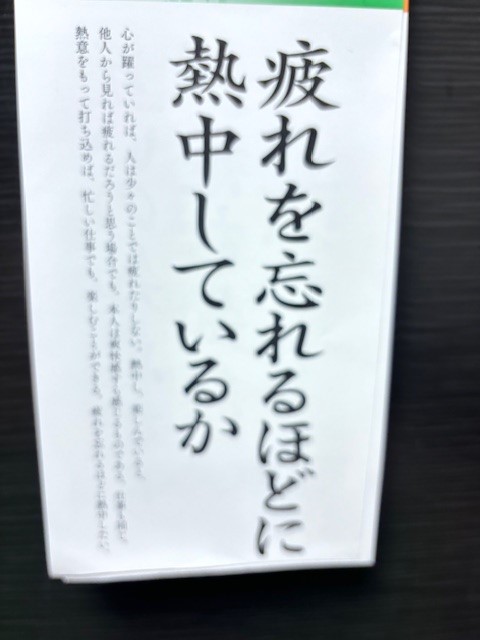 疲れを忘れるほどに
熱中しているか
心が躍っていれば、人は少々のことでは疲れたりしない。熱中し、楽しんでいると、
他人から見れば疲れるだろうと思う場合でも、本人は爽快感すら感じるものである。仕事も同じ。
熱意をもって打ち込めば、忙しい仕事でも、楽しむことができる。疲れを忘れるほどに熱中したい。